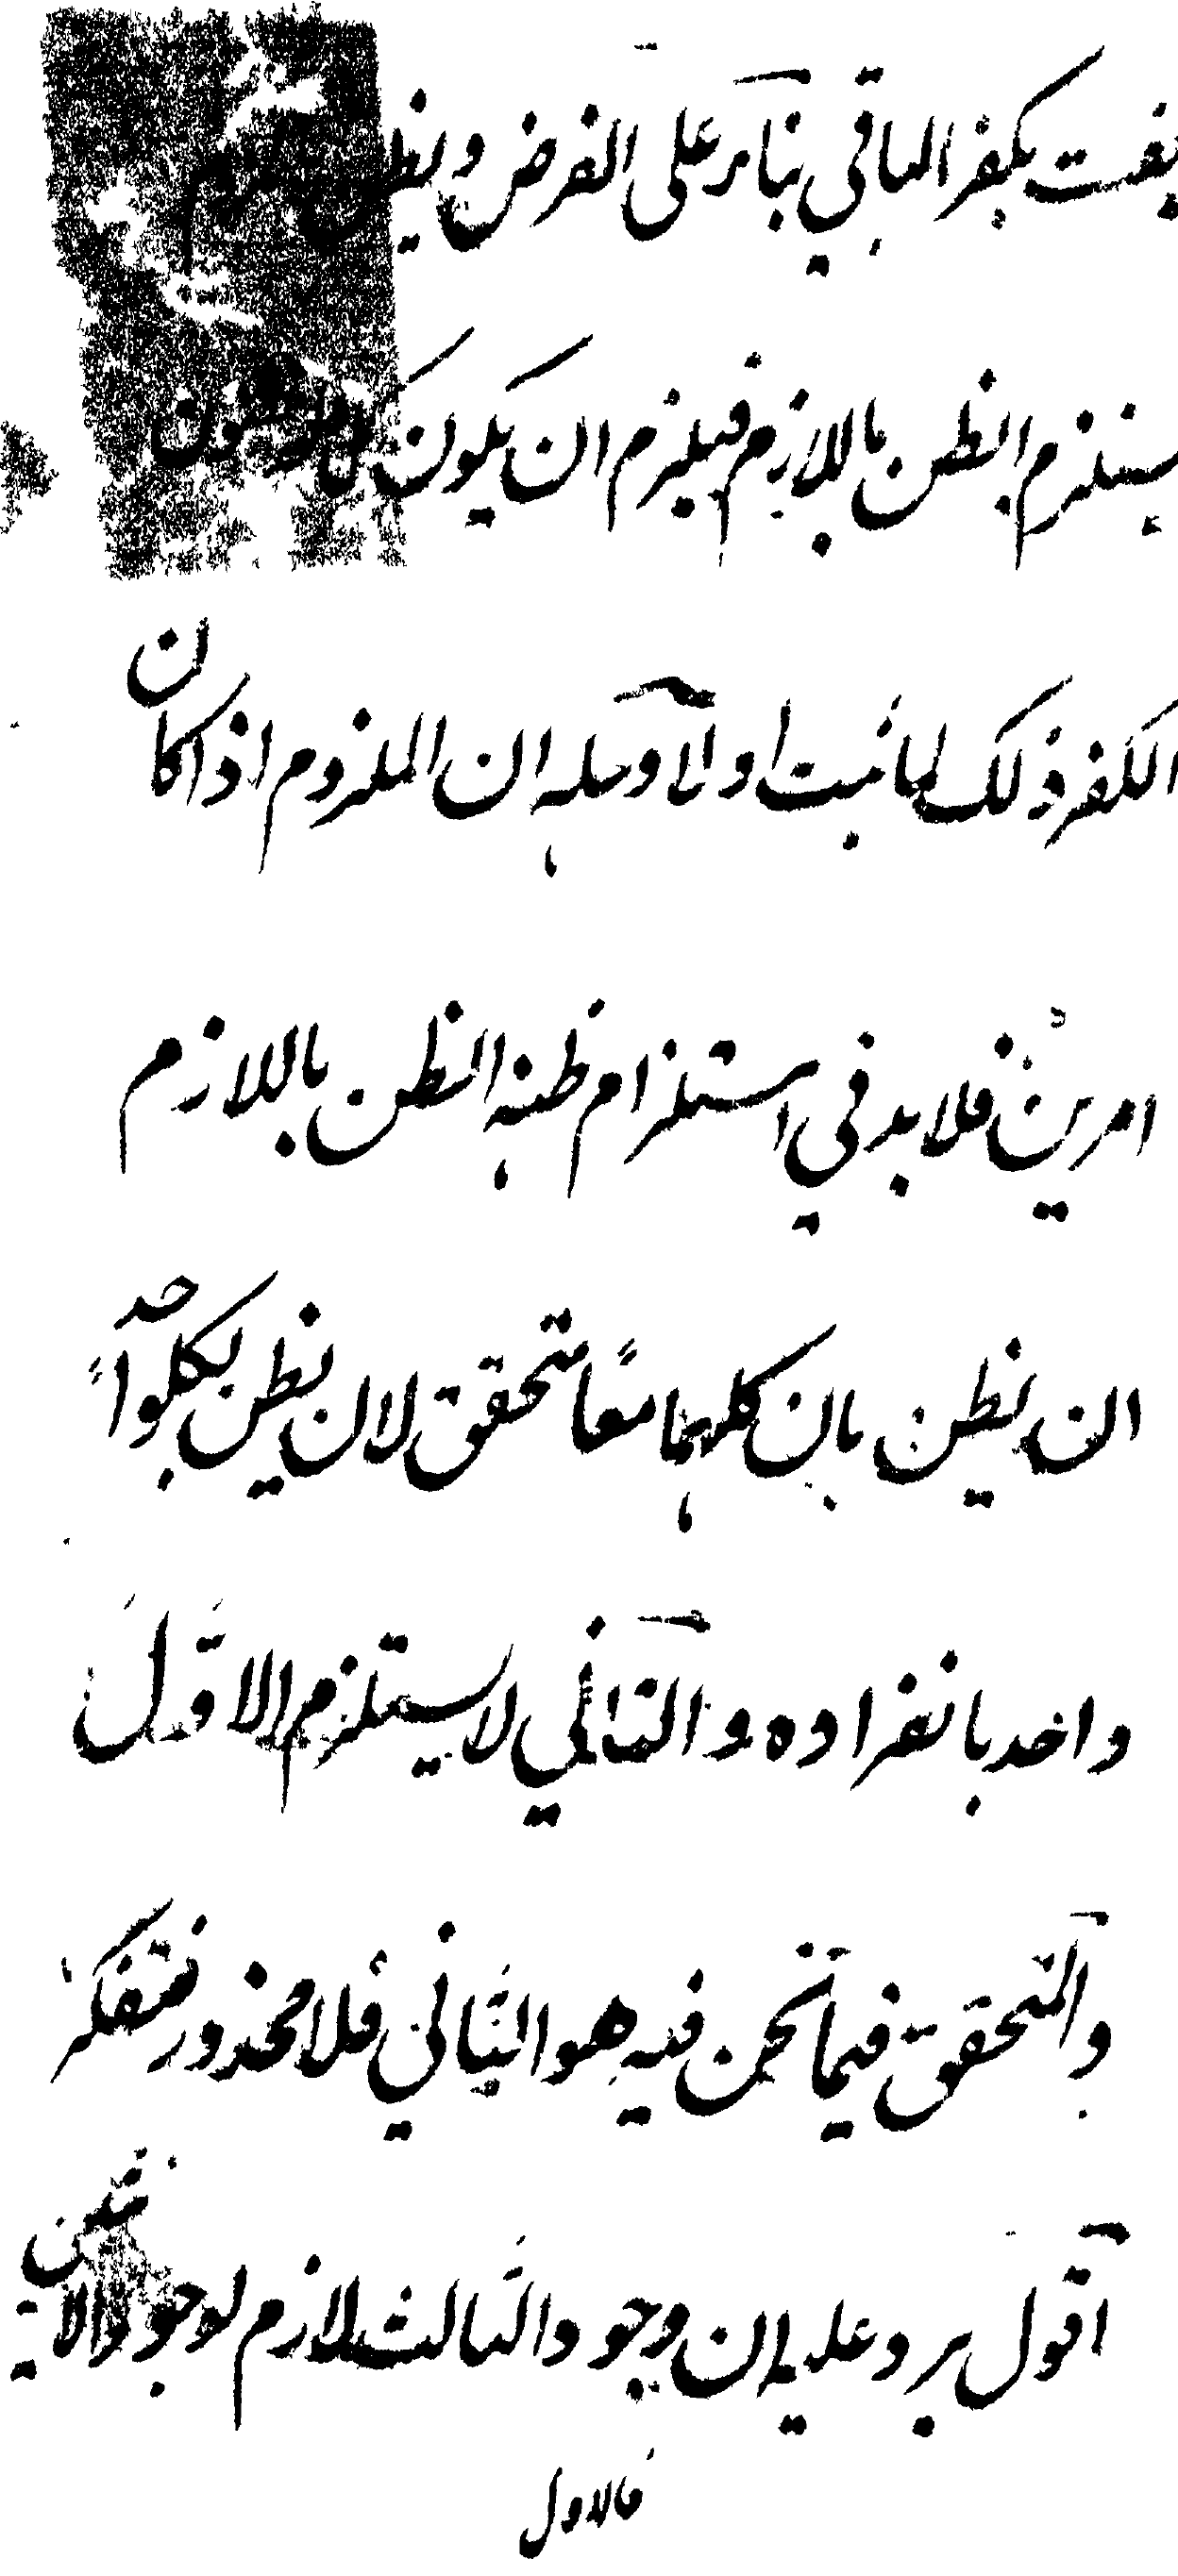 بعت بكفر الباقي بناء على الفرض ويظن بالملزوم
يستلزم الظن باللازم فيلزم ان يكون
الكفر ذلك لما ثبت اولا وسله ان الملزوم اذا كان
امرين فلا بد في استلزام ظنه الظن باللازم
ان يظن بان كليهما معًا متحقق لا ان يظن بكل واحد
واحد بانفراده والثاني لا يستلزم الاول
والمتحقق فيما نحن فيه هو الثاني فلا محذور فتفكر
اقول يرد عليه ان وجود الثالث لازم لوجود الاثنين
فالاول